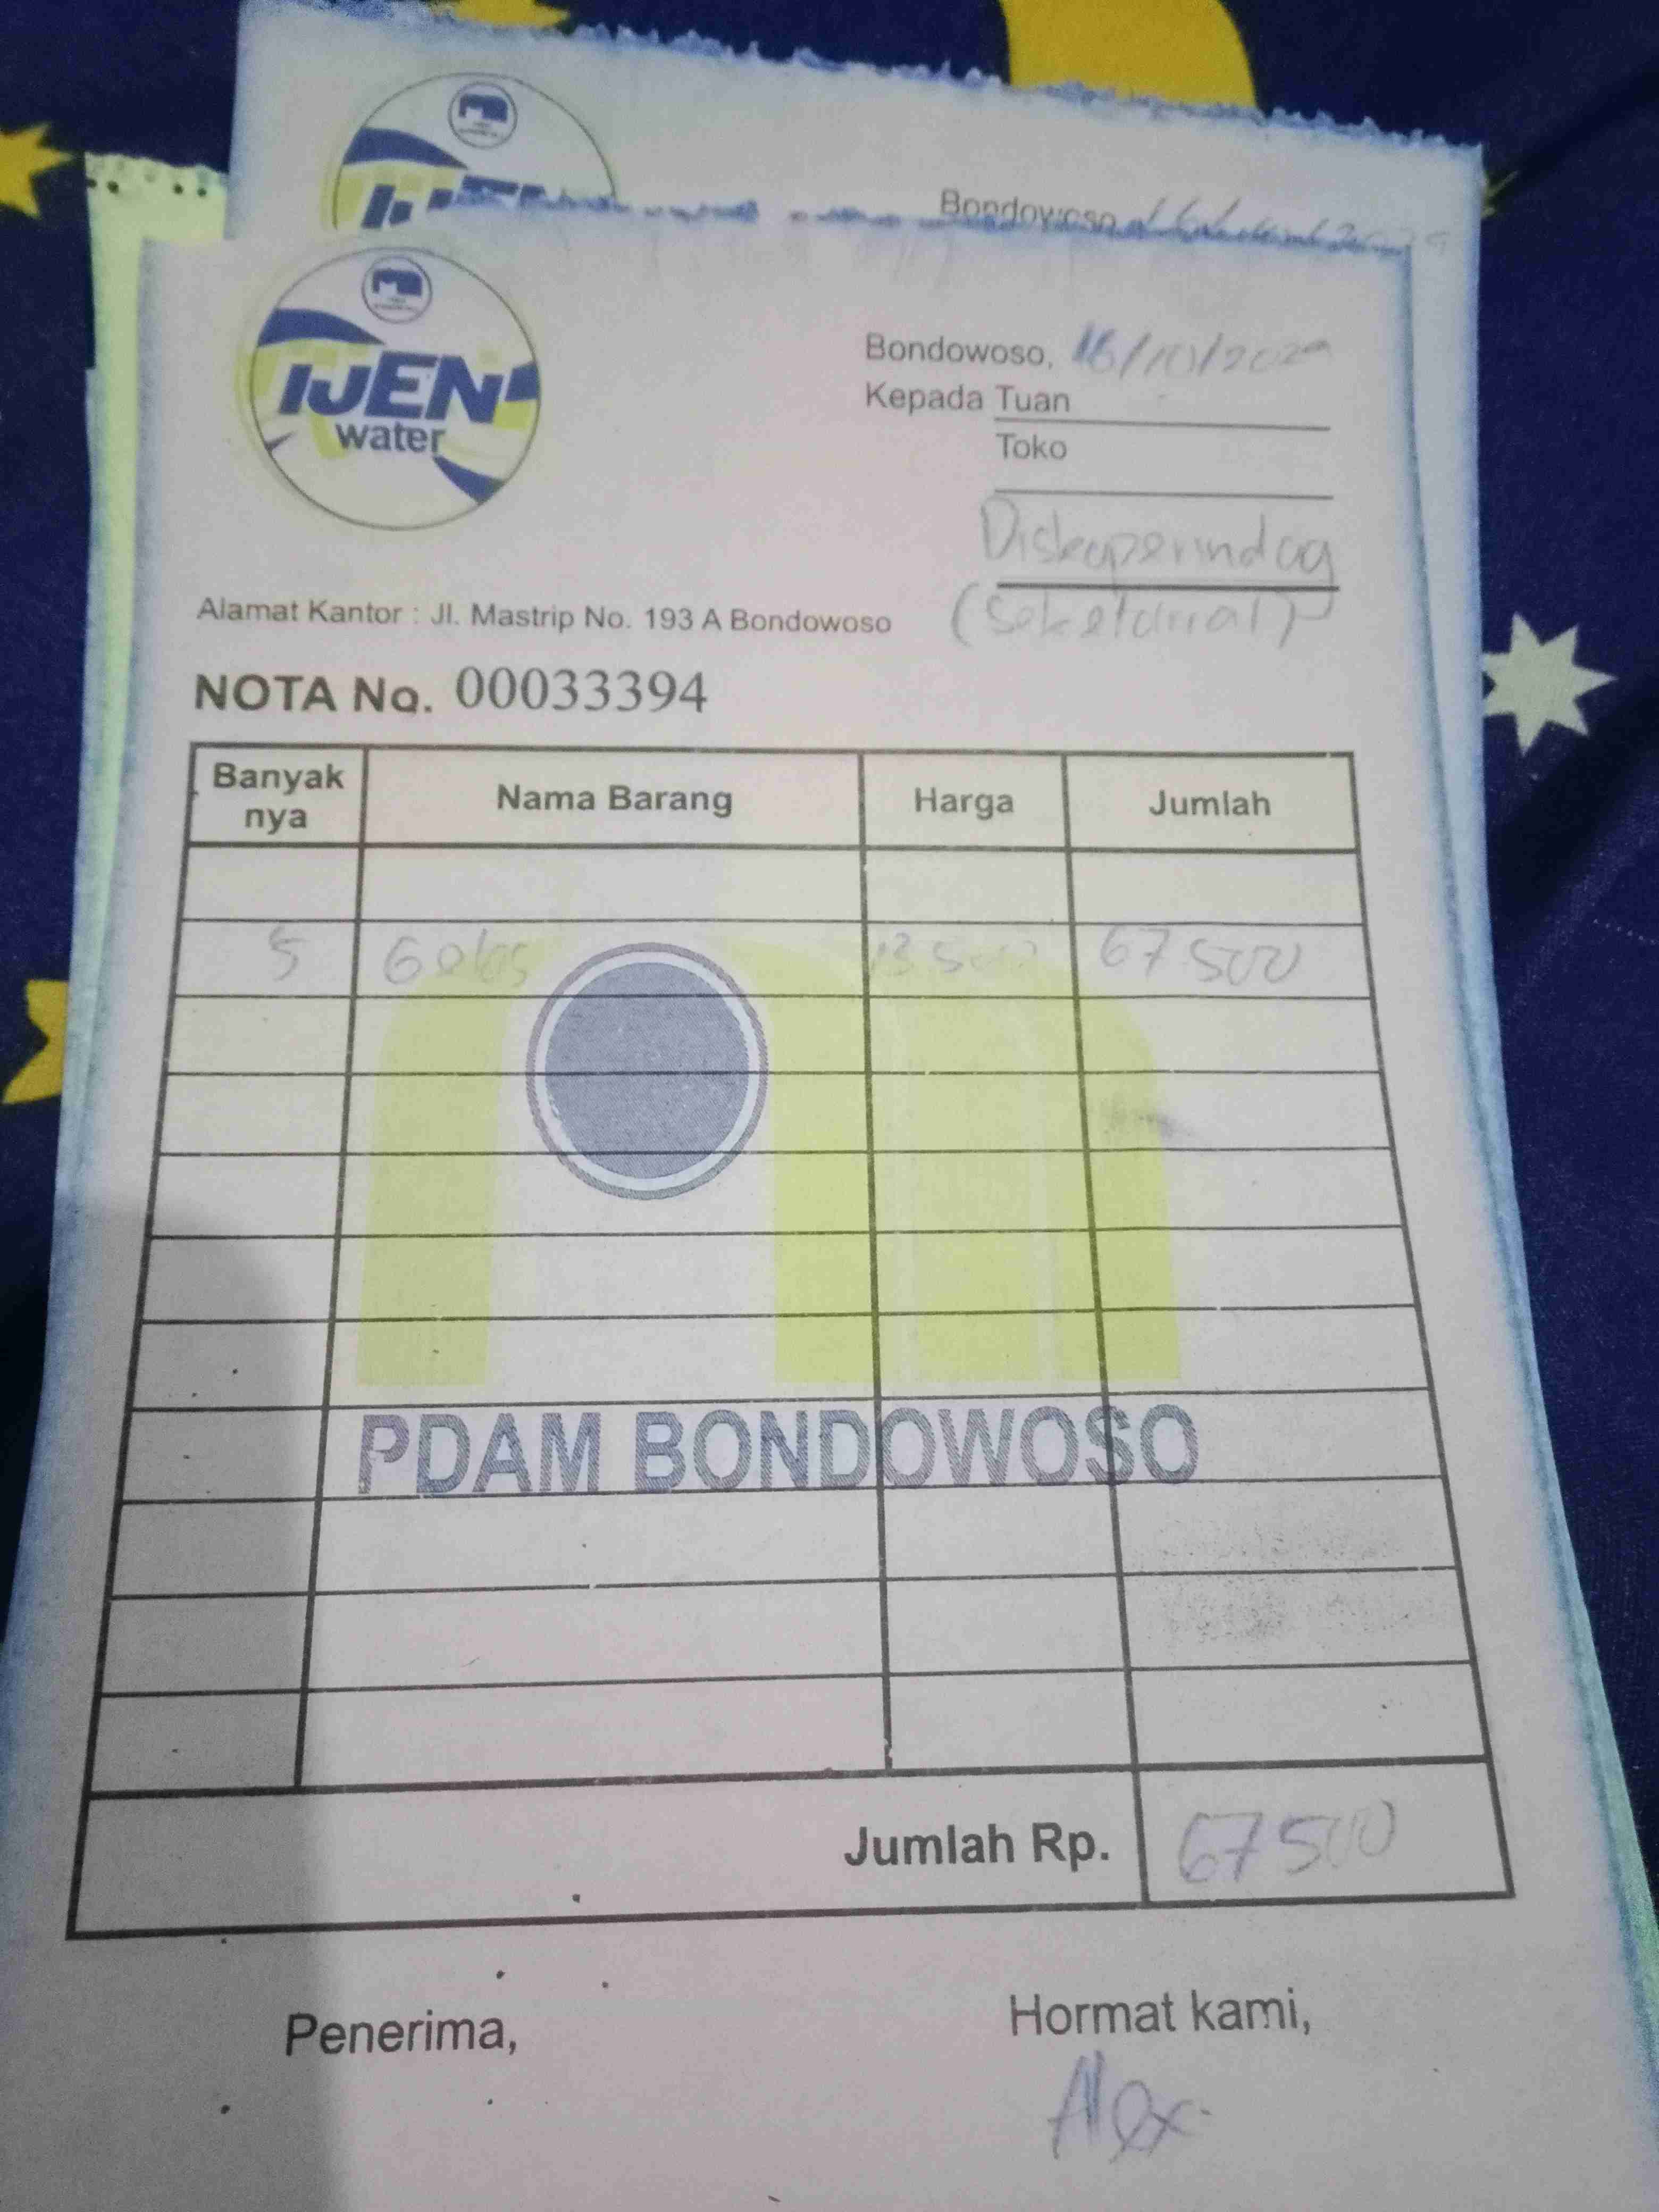 Bondowoso,
IJEN
water
Bondowoso, 16/10/202
Kepada Tuan
Toko
Diskoperindag
(Seketariat)
Alamat Kantor : Jl. Mastrip No. 193 A Bondowoso
NOTA No. 00033394
Banyak nya Nama Barang Harga Jumlah
5 13 500 67.500
PDAM BONDOWOSO
Jumlah Rp. 67500
Penerima, Hormat kami,
Alex.